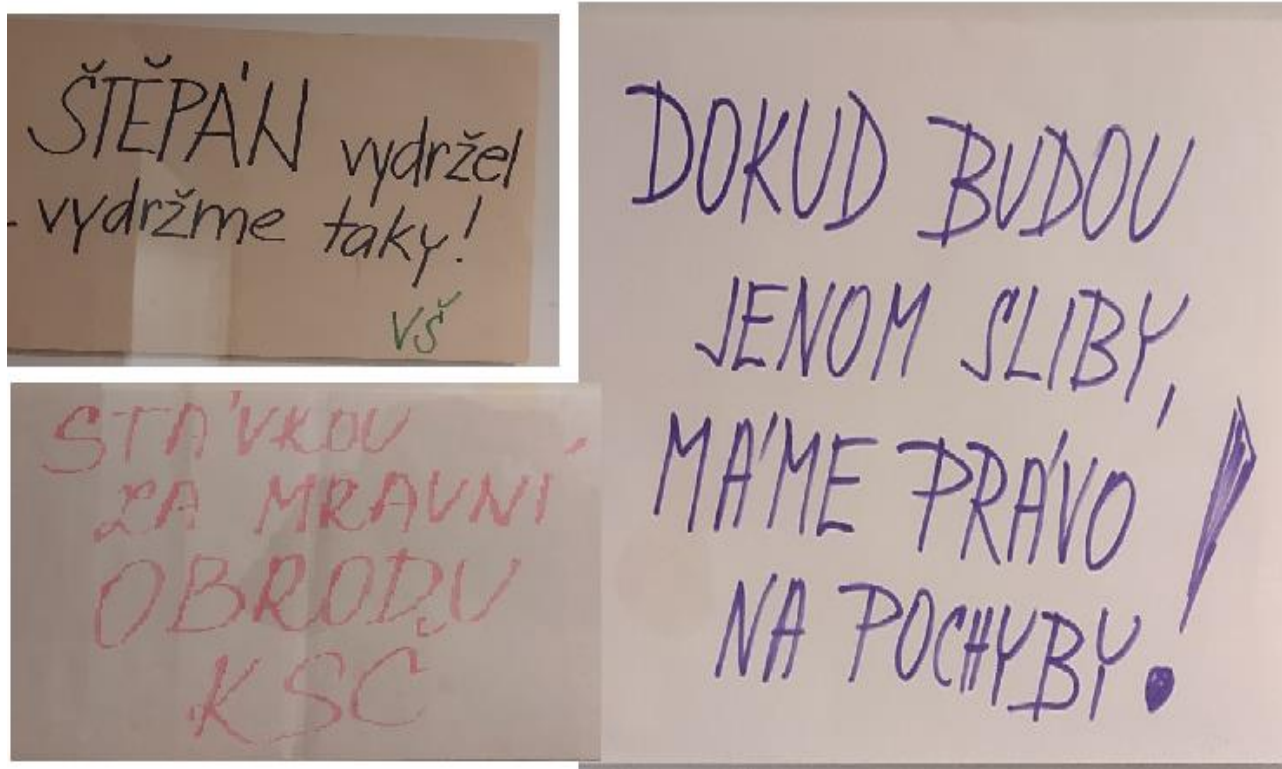 ŠTĚPÁN vydržel
- vydržme taky!
VŠ
STÁVKOU
ZA MRAVNÍ
OBRODU
KSČ
DOKUD BUDOU
JENOM SLIBY,
MÁME PRÁVO
NA POCHYBY!